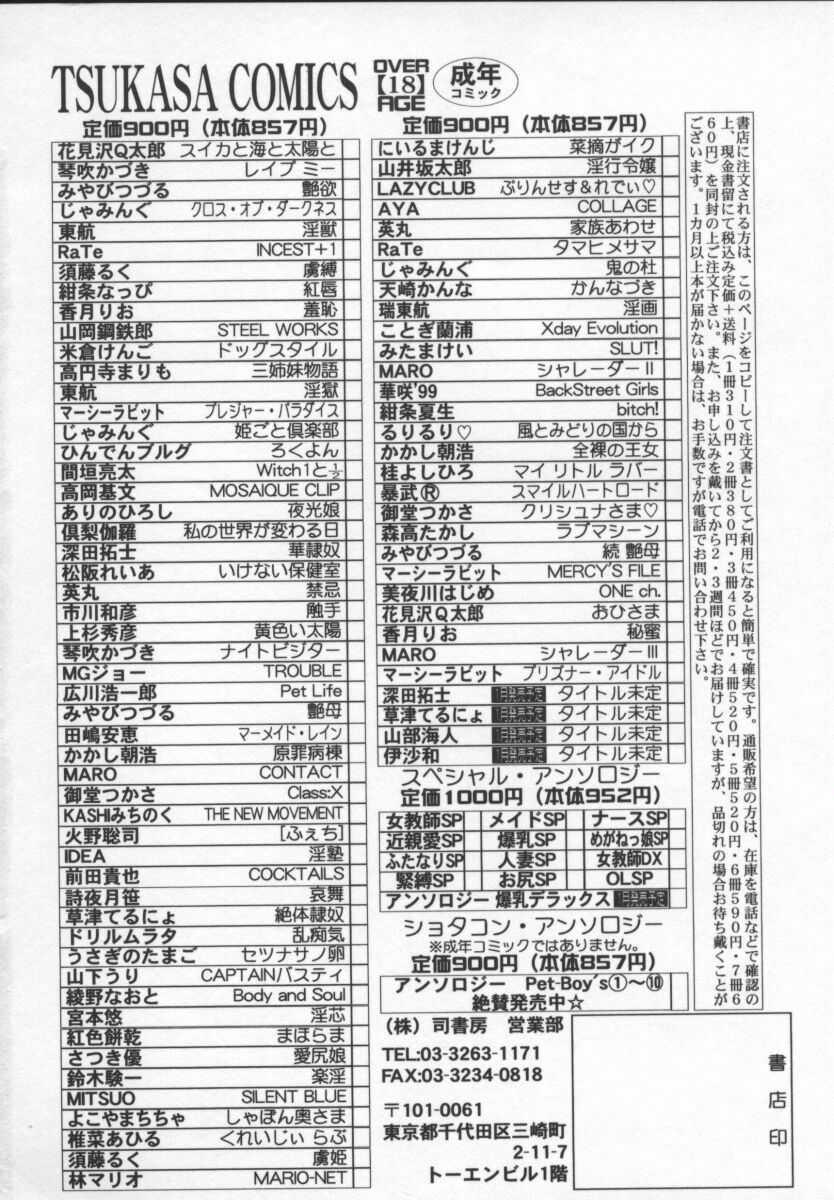 TSUKASA COMICS
OVER
【18】
AGE
成年
コミック
定価900円（本体857円）
花見沢Q太郎 スイカと海と太陽と
琴吹かづき レイプ ミー
みやびつづる 艶欲
じゃみんぐ クロス・オブ・ダークネス
東航 淫獣
RaTe INCEST+1
須藤るく 虜縛
紺条なっぴ 紅唇
香月りお 羞恥
山岡鋼鉄郎 STEEL WORKS
米倉けんご ドッグスタイル
高円寺まりも 三姉妹物語
東航 淫獄
マーシーラビット プレジャー・パラダイス
じゃみんぐ 姫ごと倶楽部
ひんでんブルグ ろくよん
間垣亮太 Witch1と½
高岡基文 MOSAIQUE CLIP
ありのひろし 夜光娘
倶梨伽羅 私の世界が変わる日
深田拓士 華隷奴
松阪れいあ いけない保健室
英丸 禁忌
市川和彦 触手
上杉秀彦 黄色い太陽
琴吹かづき ナイトビジター
MGジョー TROUBLE
広川浩一郎 Pet Life
みやびつづる 艶母
田嶋安恵 マーメイド・レイン
かかし朝浩 原罪病棟
MARO CONTACT
御堂つかさ Class:X
KASHIみちのく THE NEW MOVEMENT
火野聡司 [ふぇち]
IDEA 淫塾
前田貴也 COCKTAILS
詩夜月笹 哀舞
草津てるにょ 絶体隷奴
ドリルムラタ 乱痴気
うさぎのたまご セツナサノ卵
山下うり CAPTAINバスティ
綾野なおと Body and Soul
宮本悠 淫芯
紅色餅乾 まほらま
さつき優 愛尻娘
鈴木験一 楽淫
MITSUO SILENT BLUE
よこやまちちゃ しゃぼん奥さま
椎菜あひる くれいじぃ らぶ
須藤るく 虜姫
林マリオ MARIO-NET
定価900円（本体857円）
にいるまけんじ 菜摘がイク
山井坂太郎 淫行令嬢
LAZYCLUB ぷりんせす＆れでぃ♡
AYA COLLAGE
英丸 家族あわせ
RaTe タマヒメサマ
じゃみんぐ 鬼の杜
天崎かんな かんなづき
瑞東航 淫画
ことぎ蘭浦 Xday Evolution
みたまけい SLUT!
MARO シャレーダーⅡ
華咲'99 BackStreet Girls
紺条夏生 bitch!
るりるり♡ 風とみどりの国から
かかし朝浩 全裸の王女
桂よしひろ マイ リトル ラバー
暴武Ⓡ スマイルハートロード
御堂つかさ クリシュナさま♡
森高たかし ラブマシーン
みやびつづる 続 艶母
マーシーラビット MERCY'S FILE
美夜川はじめ ONE ch.
花見沢Q太郎 おひさま
香月りお 秘蜜
MARO シャレーダーⅢ
マーシーラビット プリズナー・アイドル
深田拓士 1月発売予定 タイトル未定
草津てるにょ 1月発売予定 タイトル未定
山部海人 1月発売予定 タイトル未定
伊沙和 1月発売予定 タイトル未定
スペシャル・アンソロジー
定価1000円（本体952円）
女教師SP メイドSP ナースSP
近親愛SP 爆乳SP めがねっ娘SP
ふたなりSP 人妻SP 女教師DX
緊縛SP お尻SP OLSP
アンソロジー 爆乳デラックス 1月発売予定
ショタコン・アンソロジー
※成年コミックではありません。
定価900円（本体857円）
アンソロジー Pet-Boy's①〜⑩
絶賛発売中☆
（株）司書房 営業部
TEL:03-3263-1171
FAX:03-3234-0818
〒101-0061
東京都千代田区三崎町
2-11-7
トーエンビル1階
書店に注文される方は、このページをコピーして注文書としてご利用になると簡単で確実です。通販希望の方は、在庫を電話などで確認の
上、現金書留にて税込み定価＋送料（1冊310円・2冊380円・3冊450円・4冊520円・5冊520円・6冊590円・7冊6
60円）を同封の上ご注文下さい。また、お申し込みを戴いてから2・3週間ほどでお届けしていますが、品切れの場合お待ち戴くことが
ございます。1カ月以上本が届かない場合は、お手数ですが電話でお問い合わせ下さい。
書店印